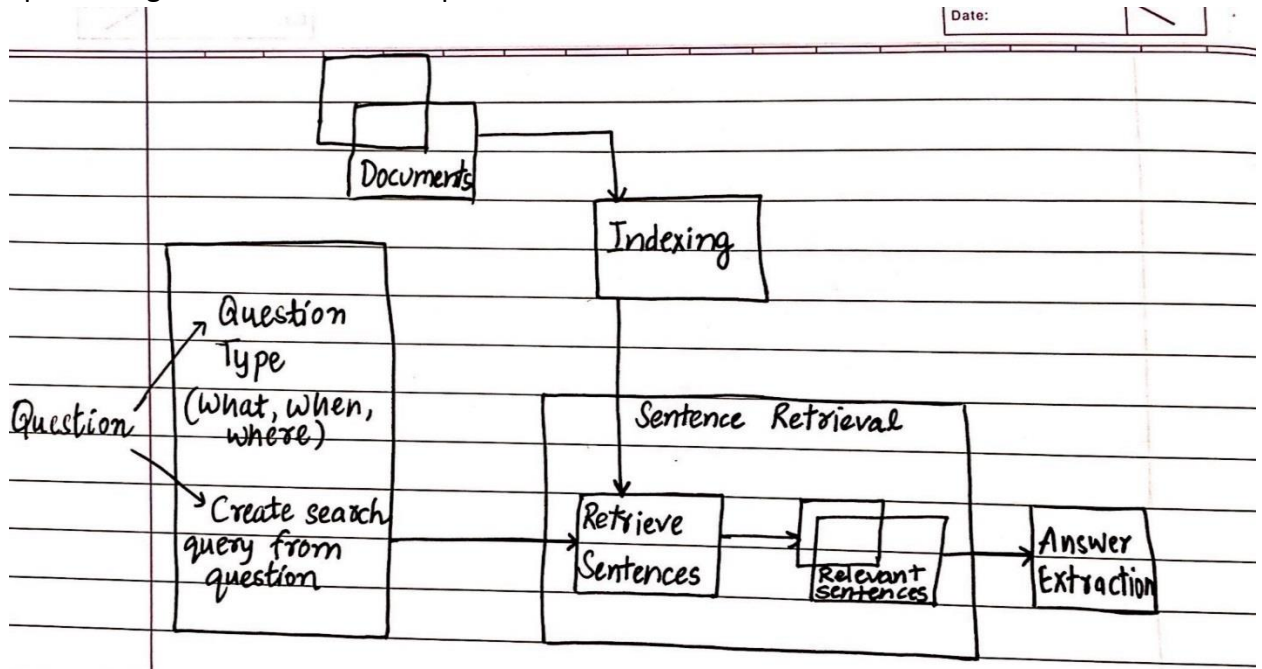 Date:
Documents
Indexing
Question
Type
(What, when,
where)
Question
Create search
query from
question
Sentence Retrieval
Retrieve
Sentences
Relevant
sentences
Answer
Extraction